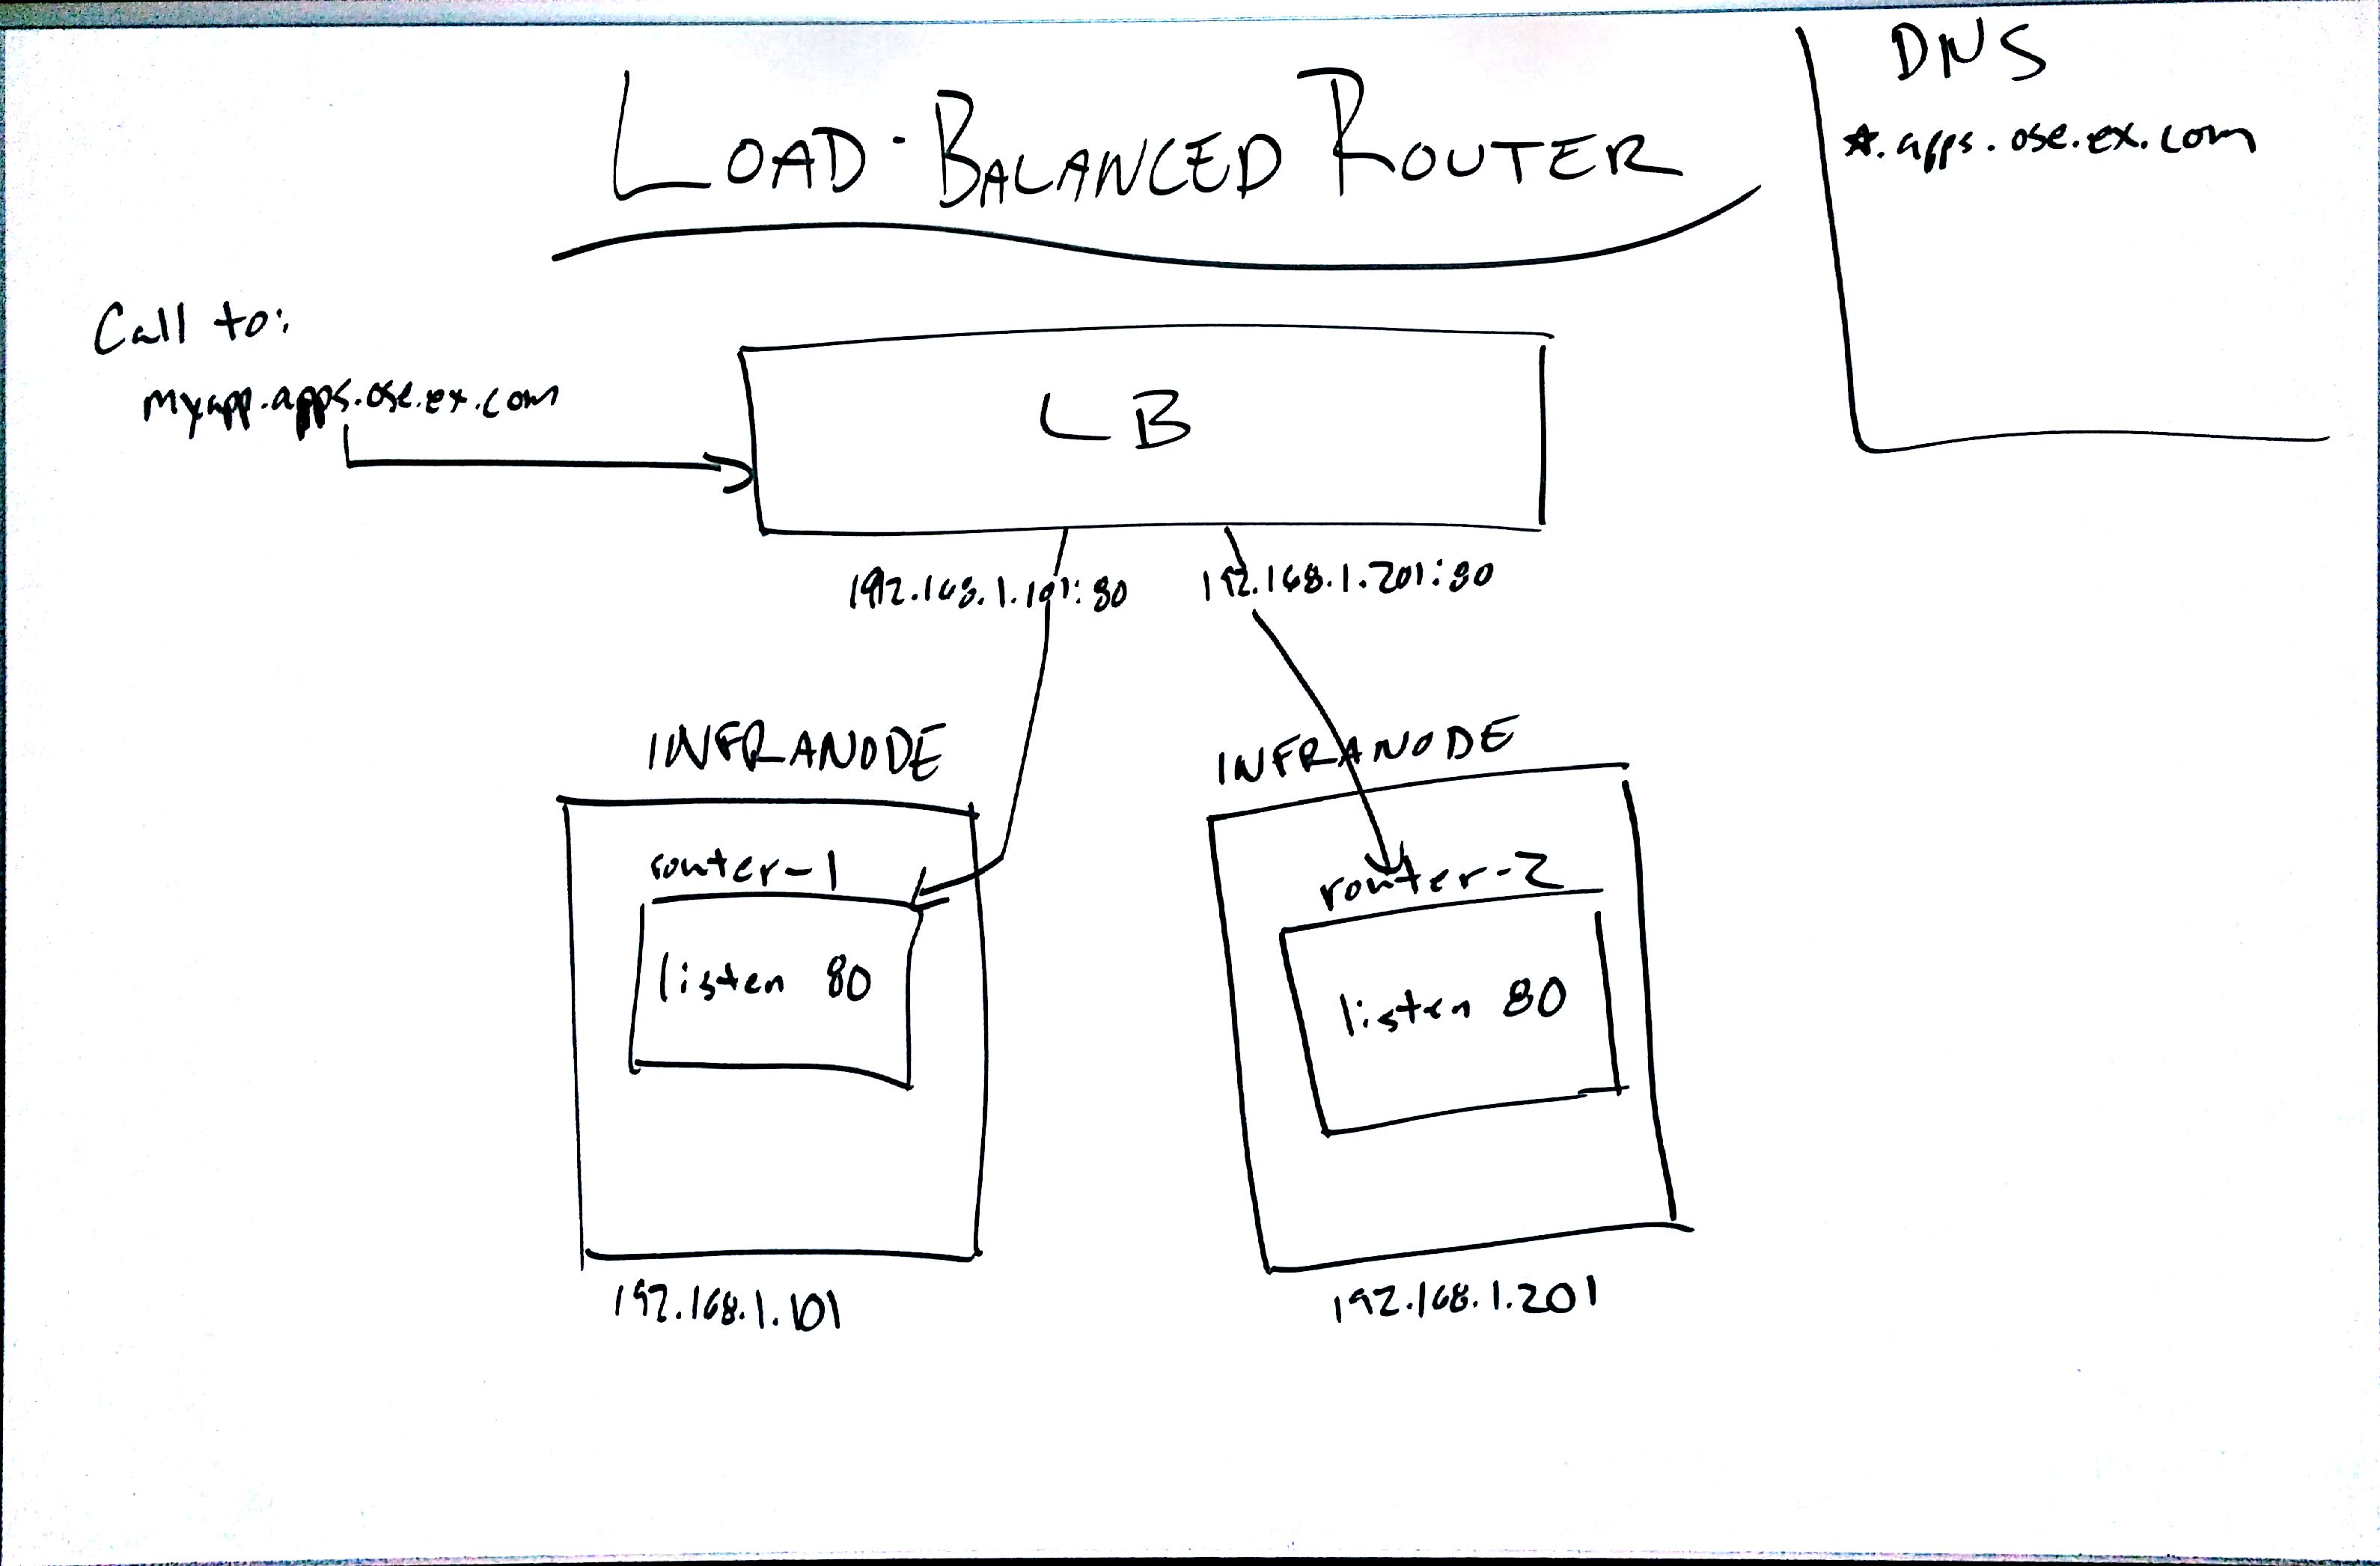 LOAD-BALANCED ROUTER
DNS
*.apps.ose.ex.com
Call to:
myapp.apps.ose.ex.com
LB
192.168.1.101:80
192.168.1.201:80
INFRANODE
router-1
listen 80
192.168.1.101
INFRANODE
router-2
listen 80
192.168.1.201